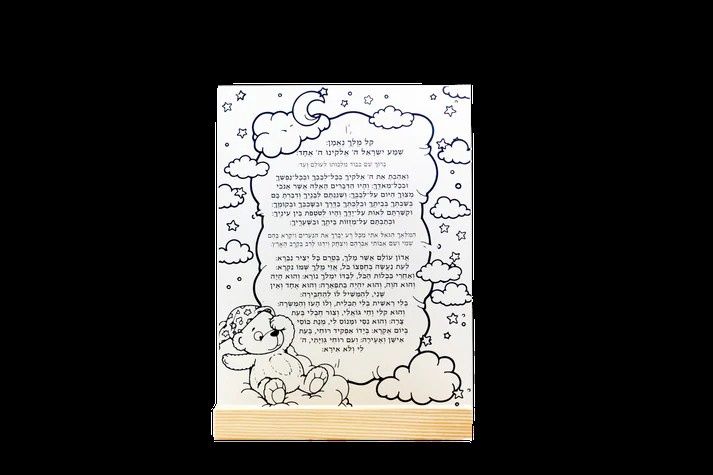 קל מלך נאמן:
שמע ישראל ה' אלקינו ה' אחד:
ברוך שם כבוד מלכותו לעולם ועד
ואהבת את ה' אלקיך בכל-לבבך ובכל-נפשך
ובכל-מאדך: והיו הדברים האלה אשר אנכי
מצוך היום על-לבבך: ושננתם לבניך ודברת בם
בשבתך בביתך ובלכתך בדרך ובשכבך ובקומך:
וקשרתם לאות על-ידך והיו לטטפת בין עיניך:
וכתבתם על-מזוזות ביתך ובשעריך:
המלאך הגואל אתי מכל רע יברך את הנערים ויקרא בהם
שמי ושם אבותי אברהם ויצחק וידגו לרב בקרב הארץ.
אדון עולם אשר מלך, בטרם כל יציר נברא:
לעת נעשה בחפצו כל, אזי מלך שמו נקרא:
ואחרי ככלות הכל, לבדו ימלך נורא: והוא היה
והוא הוה, והוא יהיה בתפארה: והוא אחד ואין
שני, להמשיל לו להחבירה:
בלי ראשית בלי תכלית, ולו העז והמשרה:
והוא קלי וחי גואלי, וצור חבלי בעת
צרה: והוא נסי ומנוס לי, מנת כוסי
ביום אקרא: בידו אפקיד רוחי, בעת
אישן ואעירה: ועם רוחי גויתי, ה'
לי ולא אירא: